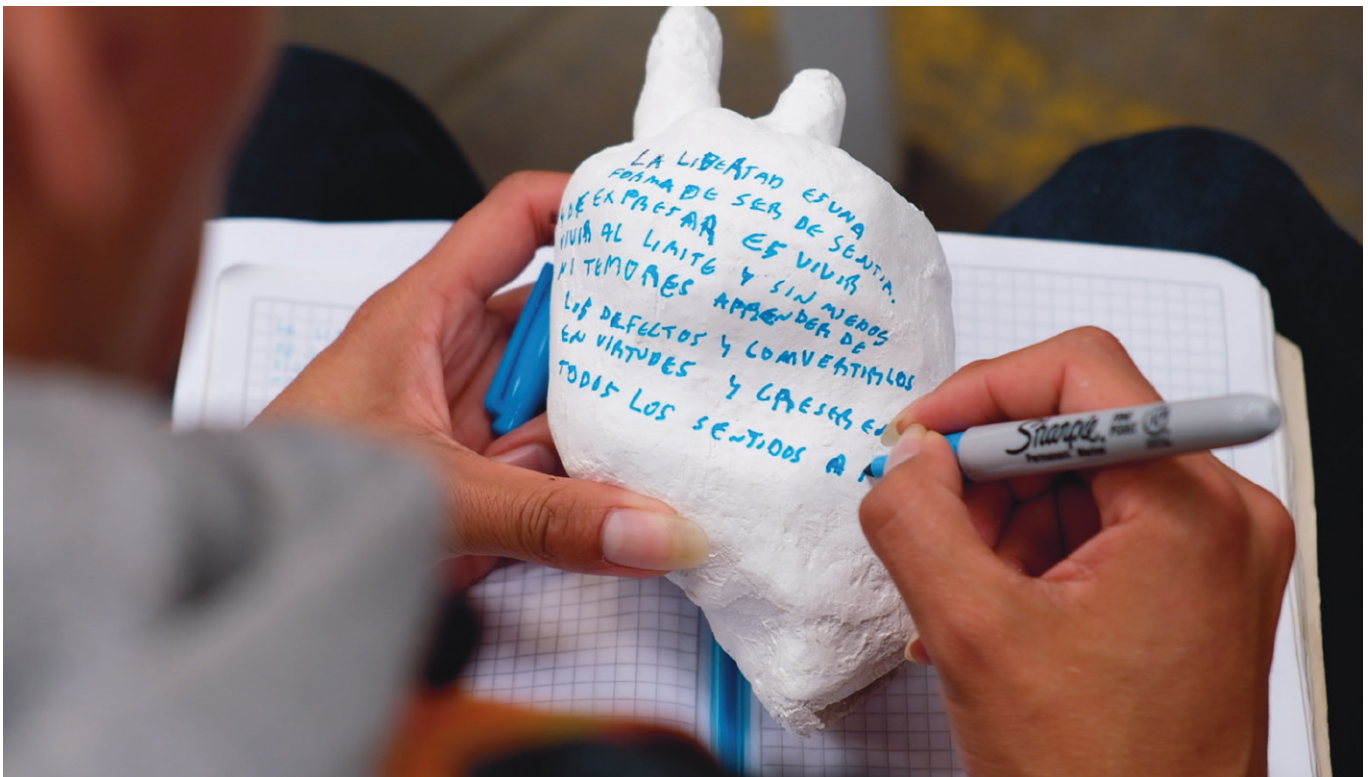 LA LIBERTAD ES UNA
FORMA DE SER DE SENTIR.
Y DE EXPRESAR ES VIVIR
VIVIR AL LIMITE Y SIN MIEDOS
NI TEMORES APRENDER DE
LOS DEFECTOS Y COMVERTIRLOS
EN VIRTUDES Y CRESER EN
TODOS LOS SENTIDOS A
Sharpie
Permanent Marker
FINE
POINT